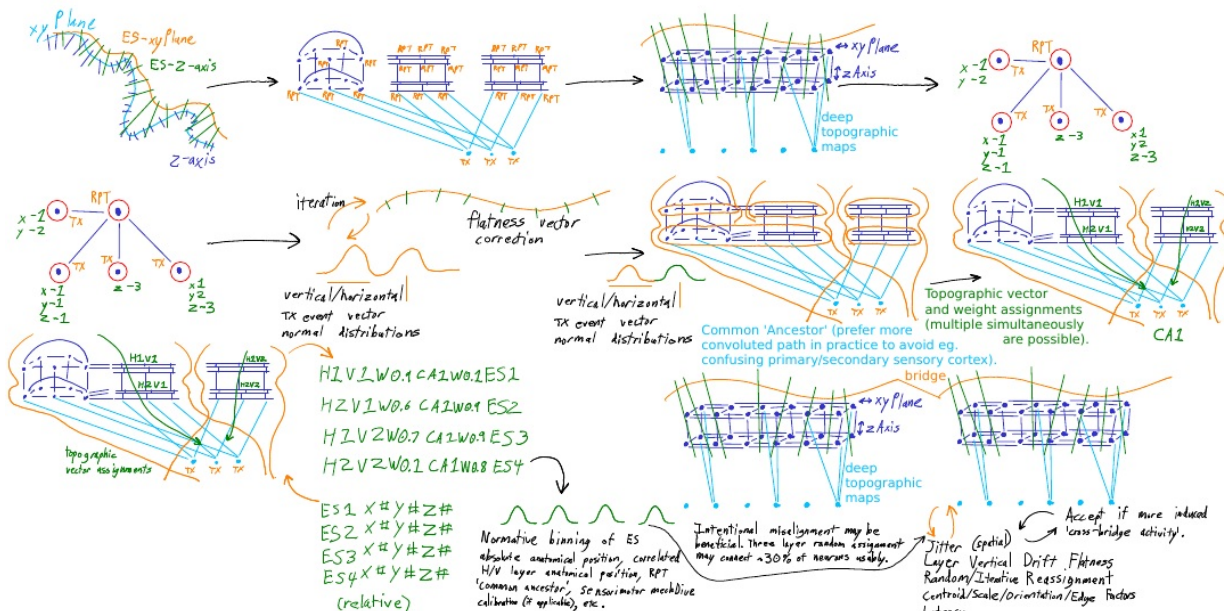 xy Plane
ES-xyPlane
ES-Z-axis
Z-axis
RPT
RPT RPT RPT
RPT RPT RPT
RPT RPT RPT
RPT RPT RPT
RPT RPT RPT
RPT RPT RPT
RPT RPT RPT
TX TX TX
↔ xyPlane
↕ zAxis
deep
topographic
maps
RPT
x-1
y-2
TX
TX TX TX
x-1
y-1
z-1
z-3
x1
y2
z-3
RPT
x-1
y-2
TX
TX TX TX
x-1
y-1
z-1
z-3
x1
y2
z-3
iteration
flatness vector
correction
vertical/horizontal
TX event vector
normal distributions
vertical/horizontal
TX event vector
normal distributions
TX TX TX
Common 'Ancestor' (prefer more
convoluted path in practice to avoid eg.
confusing primary/secondary sensory cortex).
H1V1
H2V1
H1V2
H2V2
TX TX TX
CA1
Topographic vector
and weight assignments
(multiple simultaneously
are possible).
H1V1
H2V1
H1V2
H2V2
topographic
vector assignments
TX TX TX
H1V1W0.9CA1W0.1ES1
H2V1W0.6 CA1W0.9 ES2
H1V2W0.7 CA1W0.9ES3
H2V2W0.1 CA1W0.8 ES4
ES1 X#Y#Z#
ES2 X#Y#Z#
ES3 X#Y#Z#
ES4X#Y#Z#
(relative)
Normative binning of ES
absolute anatomical position, correlated
H/V layer anatomical position, RPT
'common ancestor', sensorimotor mechDive
calibration (if applicable), etc.
bridge
↔ xyPlane
↕ zAxis
deep
topographic
maps
Intentional misalignment may be
beneficial. Three layer random assignment
may connect ~30% of neurons usably.
Accept if more induced
'cross-bridge activity'.
Jitter (spatial)
Layer Vertical Drift Flatness
Random/Iterative Reassignment
Centroid/Scale/Orientation/Edge Factors